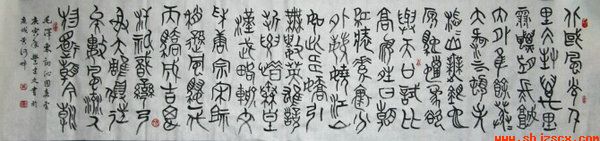 北國風光千
里冰封萬里
雪飄望長城
内外惟餘莽
莽大河上下頓失
滔滔山舞銀蛇
原馳蠟象欲
與天公試比
高須晴日看
紅裝素裹分
外妖嬈江山
如此多嬌引
無數英雄競
折腰惜秦皇
漢武略輸文
采唐宗宋祖
稍遜風騷一代天
驕成吉思
汗祇識彎弓
射大雕俱往
矣數風流人
物還看今朝
毛澤東詞沁園春雪
www.shjzscx.com